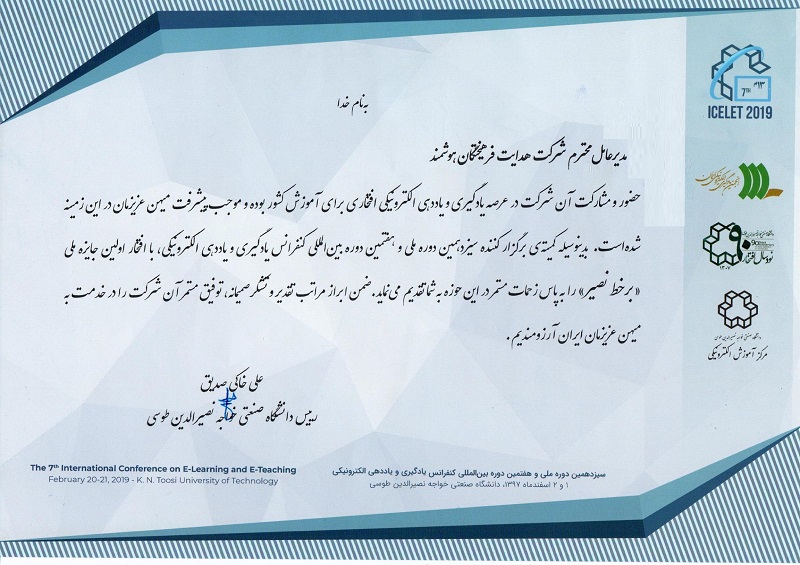 به نام خدا
مدیرعامل محترم شرکت هدایت فرهیختگان هوشمند
حضور و مشارکت آن شرکت در عرصه یادگیری و یاددهی الکترونیکی افتخاری برای آموزش کشور بوده و موجب پیشرفت میهن عزیزمان در این زمینه
شده است. بدینوسیله کمیته‌ی برگزار کننده سیزدهمین دوره ملی و هفتمین دوره بین‌المللی کنفرانس یادگیری و یاددهی الکترونیکی، با افتخار اولین جایزه ملی
«برخط نصیر» را به پاس زحمات مستمر در این حوزه به شما تقدیم می‌نماید. ضمن ابراز مراتب تقدیر و تشکر صمیمانه، توفیق مستمر آن شرکت را در خدمت به
میهن عزیزمان ایران آرزومندیم.
علی خاکی صدیق
رییس دانشگاه صنعتی خواجه نصیرالدین طوسی
The 7th International Conference on E-Learning and E-Teaching
February 20-21, 2019 - K. N. Toosi University of Technology
سیزدهمین دوره ملی و هفتمین دوره بین‌المللی کنفرانس یادگیری و یاددهی الکترونیکی
۱ و ۲ اسفندماه ۱۳۹۷، دانشگاه صنعتی خواجه نصیرالدین طوسی
7TH
۱۳م
ICELET 2019
۹۰
نود سال افتخار
۱۳۰۷
دانشگاه صنعتی خواجه نصیرالدین طوسی
مرکز آموزش الکترونیکی